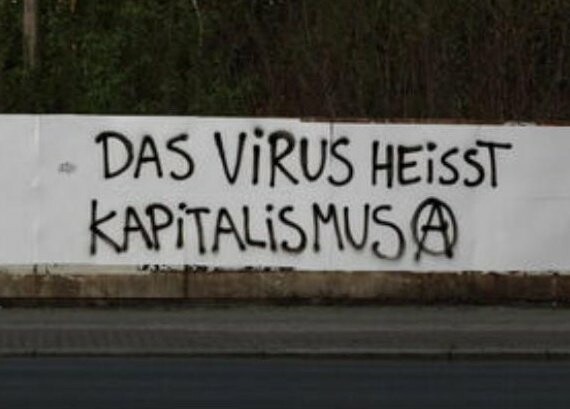 DAS ViRUS HEiSST
KAPiTALiSMUS Ⓐ